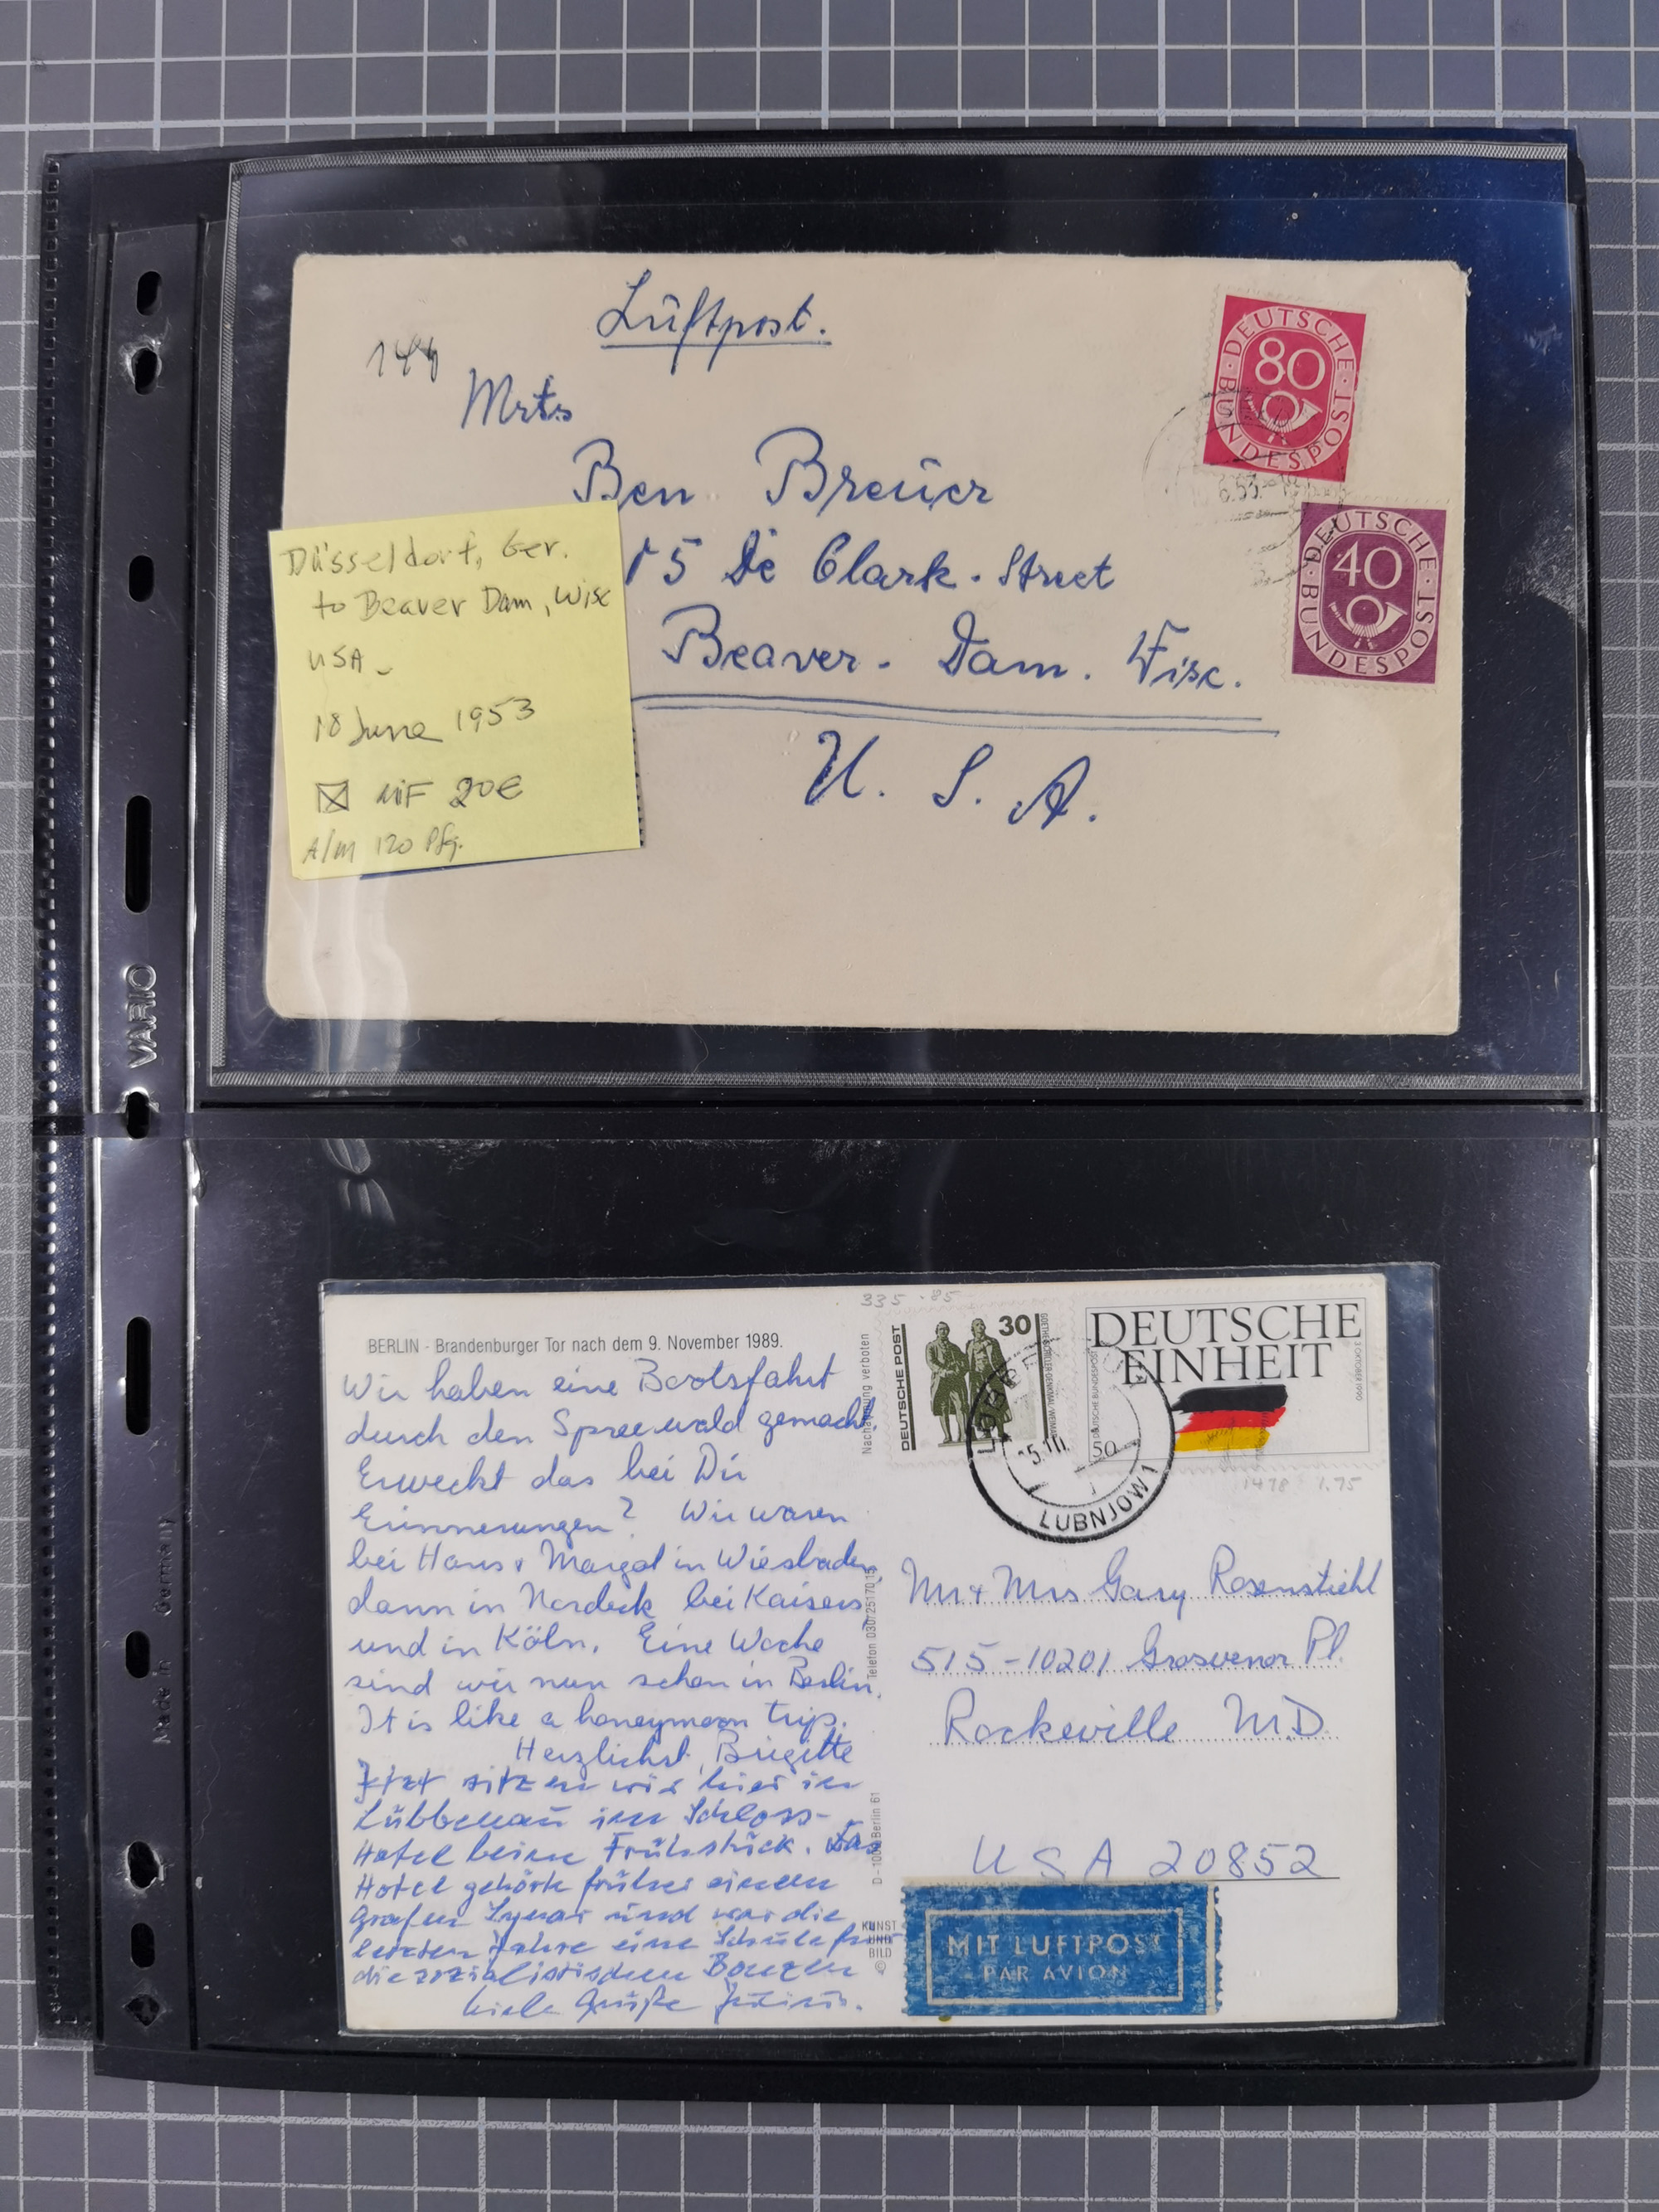 Luftpost.
144
Mrts
Ben Breuer
15 De Clark. Street
Beaver - Dam. Wisc.
U. S. A.
DEUTSCHE BUNDESPOST
80
6.53.
DEUTSCHE BUNDESPOST
40
Düsseldorf, Ger.
to Beaver Dam, Wisc
USA
18 June 1953
MiF 20€
A/m 120 Pfg.
VARIO
Made in Germany
BERLIN - Brandenburger Tor nach dem 9. November 1989.
Wir haben eine Bootsfahrt
durch den Spreewald gemacht
Erweckt das bei Dir
Erinnerungen? Wir waren
bei Hans + Margot in Wiesbaden,
dann in Nordeck bei Kaisers
und in Köln. Eine Woche
sind wir nun schon in Berlin.
It is like a honeymoon trip.
Herzlichst, Brigitte
Jetzt sitzen wir hier im
Lübbenau im Schloss-
Hotel beim Frühstück. Das
Hotel gehörte früher einem
Grafen Lynar und war die
letzten Jahre eine Schule für
die sozialistischen Bonzen
Viele Grüße
Nachahmung verboten
Telefon 030/2517015
D - 1000 Berlin 61
KUNST
UND
BILD
©
335 .85
DEUTSCHE POST
30
GOETHE-SCHILLER-DENKMAL/WEIMAR
DEUTSCHE
EINHEIT
DEUTSCHE BUNDESPOST
50
3. OKTOBER 1990
LÜBBENAU
LUBNJOW 1
1478 1.75
Mr + Mrs Gary Rosenstiehl
515-10201 Grosvenor Pl.
Rockeville MD.
USA 20852
MIT LUFTPOST
PAR AVION